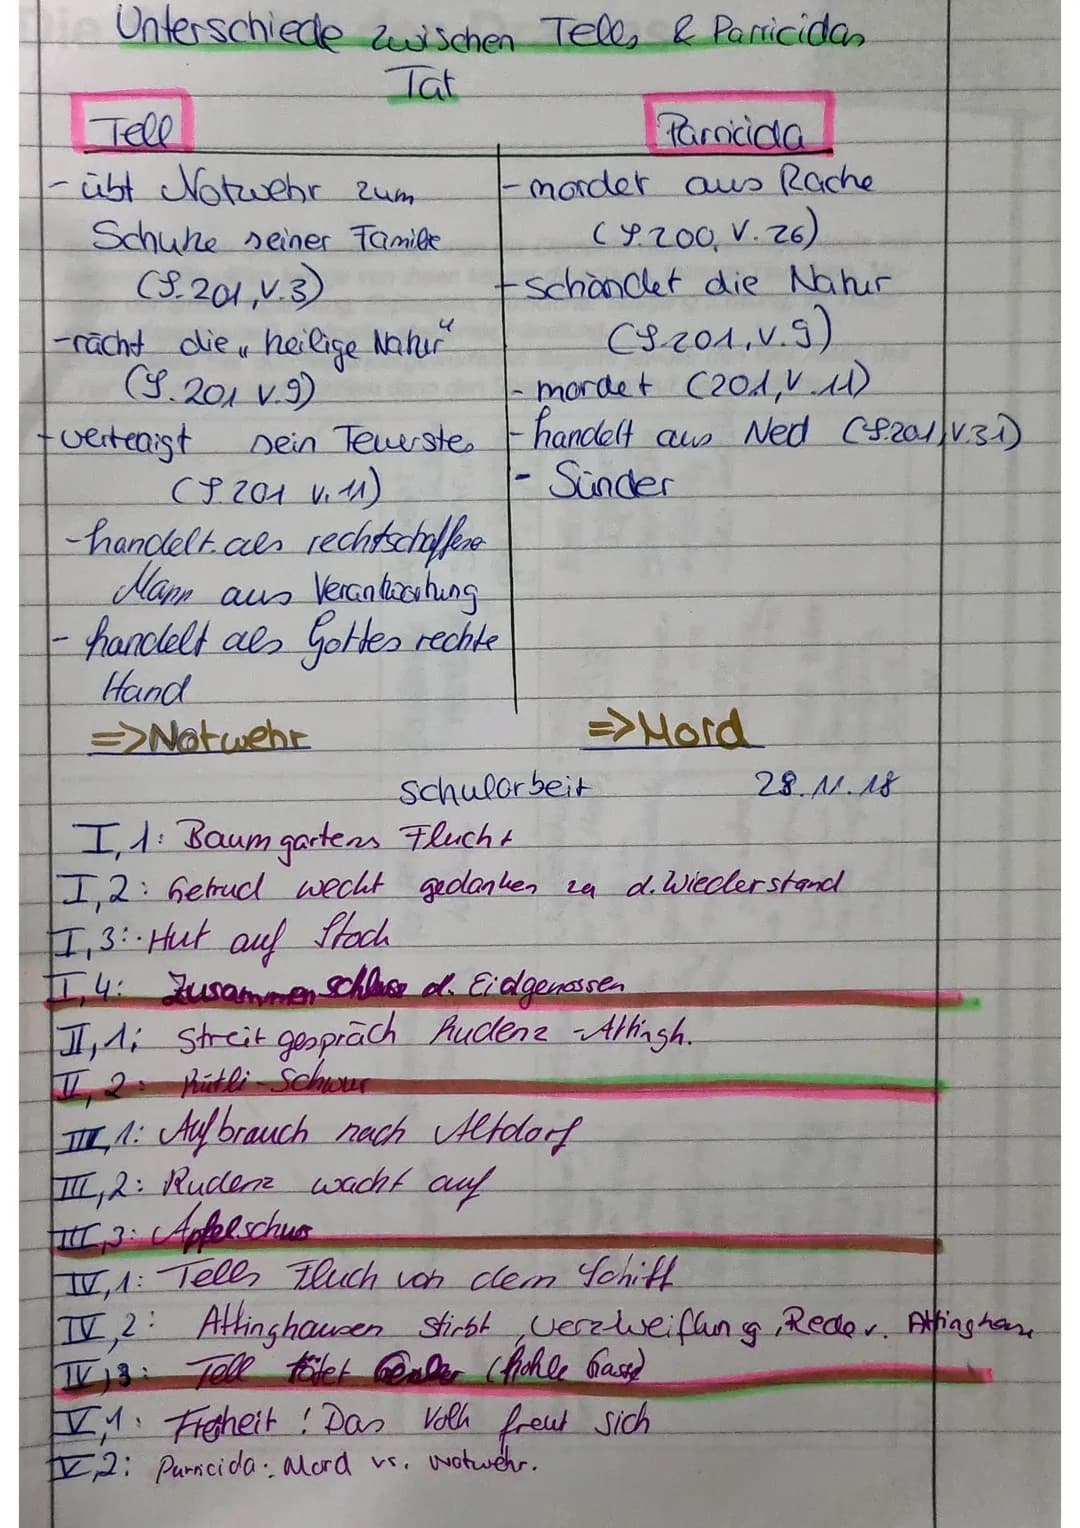 Unterschiede zwischen Tells & Parricidas
Tat
Tell
- übt Notwehr zum
Schutze seiner Familie
(S. 201, V. 3)
- rächt die „heilige Natur"
(S. 201 V. 9)
- verteaigt sein Teuerstes
(S. 201 V. 11)
- handelt als rechtschaffene
Mann aus Verantwortung
- handelt als Gottes rechte
Hand
=> Notwehr
Parricida
- mordet aus Rache
(S. 200, V. 26)
- schändet die Natur
(S. 201, V. 9)
- mordet (201, V. 11)
- handelt aus Neid (S. 201, V. 31)
- Sünder
=> Mord
Schularbeit 28.11.18
I,1: Baumgartens Flucht
I,2: Getrud weckt gedanken za d. Wiederstand
I,3: Hut auf Stock
I,4: Zusammenschluss d. Eidgenossen
II,1: Streitgespräch Rudenz - Attingh.
II,2: Rütli-Schwur
III,1: Aufbrauch nach Altdorf
III,2: Rudenz wacht auf
III,3: Apfelschuss
IV,1: Tells Fluch von dem Schiff
IV,2: Attinghausen stirbt, Verzweiflung, Rede v. Attinghause
IV,3: Tell tötet Gessler (hohle Gasse)
V,1: Freiheit! Das Volk freut sich
V,2: Parricida: Mord vs. Notwehr.